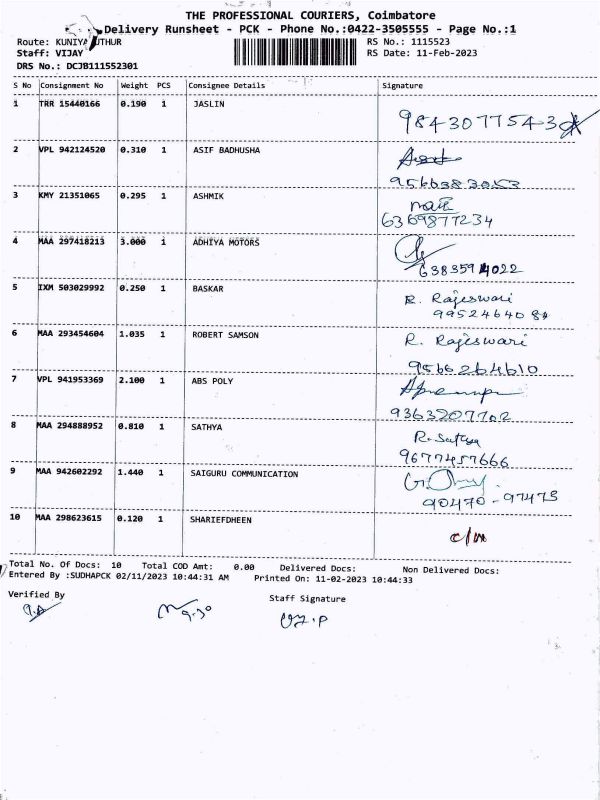 THE PROFESSIONAL COURIERS, Coimbatore
Delivery Runsheet - PCK - Phone No.:0422-3505555 - Page No.:1
Route: KUNIYA UTHUR RS No.: 1115523
Staff: VIJAY RS Date: 11-Feb-2023
DRS No.: DCJB111552301
S No Consignment No Weight PCS Consignee Details Signature
1 TRR 15440166 0.190 1 JASLIN
9843077543
2 VPL 942124520 0.310 1 ASIF BADHUSHA
9566383053
3 KMY 21351065 0.295 1 ASHMIK
6369877234
4 MAA 297418213 3.000 1 ADHIYA MOTORS
6383594022
5 IXM 503029992 0.250 1 BASKAR R. Rajeswari
99524640 84
6 MAA 293454604 1.035 1 ROBERT SAMSON R. Rajeswari
9566264610
7 VPL 941953369 2.100 1 ABS POLY
9363207702
8 MAA 294888952 0.810 1 SATHYA R. Sathya
9677457666
9 MAA 942602292 1.440 1 SAIGURU COMMUNICATION
90470-97475
10 MAA 298623615 0.120 1 SHARIEFDHEEN
Total No. Of Docs: 10 Total COD Amt: 0.00 Delivered Docs: Non Delivered Docs:
Entered By :SUDHAPCK 02/11/2023 10:44:31 AM Printed On: 11-02-2023 10:44:33
Verified By Staff Signature
9.30